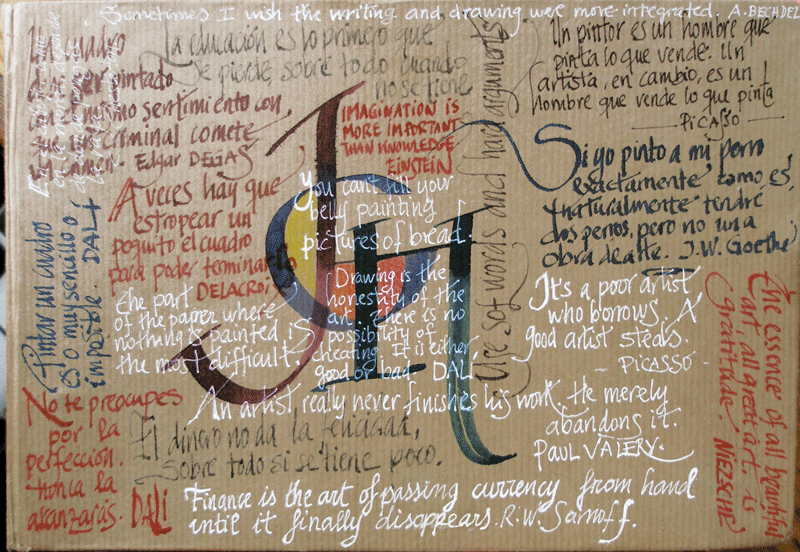 Sometimes I wish the writing and drawing were more integrated. A. BECHDEL
Un cuadro
debe ser pintado
con el mismo sentimiento con
que un criminal comete
un crimen. Edgar DEGAS
La educación es lo primero que
se pierde, sobre todo cuando
no se tiene
IMAGINATION IS
MORE IMPORTANT
THAN KNOWLEDGE
EINSTEIN
Use soft words and hard arguments
Un pintor es un hombre que
pinta lo que vende. Un
artista, en cambio, es un
hombre que vende lo que pinta
PICASSO
Si yo pinto a mi perro
exactamente como es,
naturalmente tendré
dos perros, pero no una
obra de arte. J.W. Goethe
A veces hay que
estropear un
poquito el cuadro
para poder terminarlo
DELACROIX
You can't fill your
belly painting
pictures of bread.
Pintar un cuadro
es o muy sencillo o
imposible. DALÍ
the part
of the paper where
nothing is painted, is
the most difficult
Drawing is the
honestity of the
art. There is no
possibility of
cheating. It is either
good or bad DALI
It's a poor artist
who borrows. A
good artist steals.
- PICASSO -
the essence of all beautiful
art, all great art, is
gratitude. NIEZSCHE
An artist really never finishes his work. He merely
abandons it.
PAUL VALERY.
No te preocupes
por la
perfección.
nunca la
alcanzarás. DALI
El dinero no da la felicidad,
sobre todo si se tiene poco.
Finance is the art of passing currency from hand
until it finally disappears. R.W. Sarnoff.